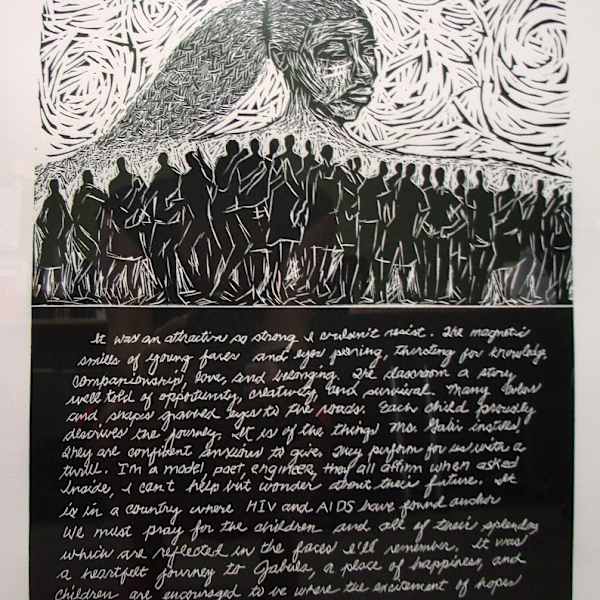 It was an attraction so strong I couldn't resist. The magnetic
smiles of young faces and eyes peering, thirsting for knowledge,
companionship, love, and belonging. The classroom a story
well told of opportunity, creativity, and survival. Many colors
and shapes graved eyes to the roads. Each child proudly
describes the journey. It is of the things Ms. Gabi instills,
They are confident anxious to give. They perform for us with a
thrill. I'm a model, poet, engineer, they all affirm when asked
Inside, I can't help but wonder about their future. It
is in a country where HIV and AIDS have found anchor
We must pray for the children and all of their splendor
which are reflected in the faces I'll remember. It was
a heartfelt journey to Gabiela, a place of happiness, and
Children are encouraged to be where the excitement of hopes